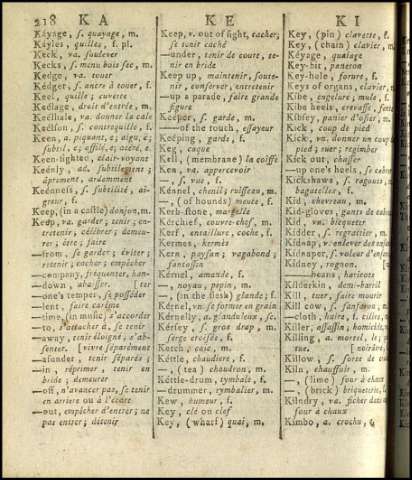 218 K A
K E
K I
Kayage, s. quayage, m.
Kayles, quilles, f. pl.
Keck, va. soulever
Kecks, s. menu bois sec, m.
Kedge, va. touer
Kedger, s. ancre à touer, f.
Keel, quille; cuvette
Keelage, droit d'entrée, m.
Keelhale, va. donner la cale
Keelson, s. contrequille, f.
Keen, a. piquant, e; aigu, e;
subtil, e; affilé, e; acéré, e
Keen-sighted, clair-voyant
Keenly, ad. subtilement;
âprement, ardemment
Keenness, s. subtilité, ai-
greur, f.
Keep, (in a castle) donjon, m.
Keep, va. garder; tenir; en-
tretenir; célébrer; demeu-
rer; être; faire
—from, se garder; éviter;
retenir; cacher; empêcher
—company, fréquenter, han-
—down, abaisser. [ter
—one's temper, se posséder
—lent, faire carême
—time, (in music) s'accorder
—to, s'attacher à, se tenir
—away, tenir éloigné, s'ab-
senter. [vivre séparément
—asunder, tenir séparés;
—in, réprimer, tenir en
bride; demeurer
—off, n'avancer pas, se tenir
en arriere ou à l'écart
—out, empêcher d'entrer; ne
pas entrer; détenir
Keep, v. out of sight, cacher;
se tenir caché
—under, tenir de court, te-
nir en bride
Keep up, maintenir, soute-
nir, conserver, entretenir
—up a parade, faire grande
figure
Keeper, s. garde, m.
—of the touch, essayeur
Keeping, garde, f.
Keg, caque
Kell, (membrane) la coiffe
Ken, va. appercevoir
—, s. vue, f.
Kennel, chenil; ruisseau, m.
—, (of hounds) meute, f.
Kerb-stone, margelle
Kerchief, couvre-chef, m.
Kerf, entaillure, coche, f.
Kermes, kermès
Kern, paysan; vagabond;
fantassin
Kernel, amande, f.
—, noyau, pepin, m.
—, (in the flesh) glande, f.
Kernel, va. se former en grain
Kernelly, a. glanduleux, se
Kersey, s. gros drap, m.
serge croisée, f.
Ketch, caic, m.
Kettle, chaudiere, f.
—, (tea) chaudron, m.
Kettle-drum, tymbale, f.
—drummer, tymbalier, m.
Kew, humeur, f.
Key, clé ou clef
Key, (wharf) quai, m.
Key, (pin) clavette, f.
Key, (chain) clavier, m.
Keyage, quaiage
Key-bit, paneton
Key-hole, forure, f.
Keys of organs, clavier,
Kibe, engelure, mule, f.
Kibes in heels, crevasse, fente
Kibsey, panier d'osier, m.
Kick, coup de pied
Kick, va. donner un coup de
pied; ruer; regimber
Kick out, chasser
—up one's heels, se
Kickshaws, s. ragoûts,
bagatelles, f.
Kid, chevreau, m.
Kid-gloves, gants de cabron
Kid, va. biqueter
Kidder, s. regrattier, m.
Kidnap, v. enlever des enfans
Kidnapper, s. voleur d'enfans
Kidney, rognon,
—beans, haricots
Kilderkin, demi-baril
Kill, tuer, faire mourir
Kill cow, s. fanfaron, m.
—cloth, haire, f. cilice, m.
Killer, assassin, homicide, m.
Killing, a. mortel, le;
Killow, s. sorte de
Kiln, chauffuir, m.
—, (lime) four à chaux
—, (brick) briqueterie, f.
Kilndry, va. sécher dans un
four à chaux
Kimbo, a. crochu,